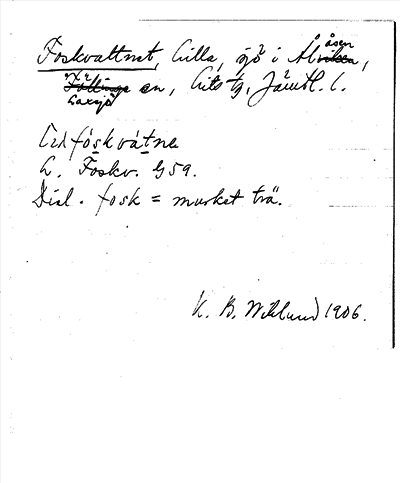 Foskvattnet, Lilla, sjö i Alåsen,
Laxsjö sn, Lits tg, Jämtl. l.
Lilfóskvátne
L. Foskv. G 59.
Dial. fosk = murket trä.
K. B. Wiklund 1906.